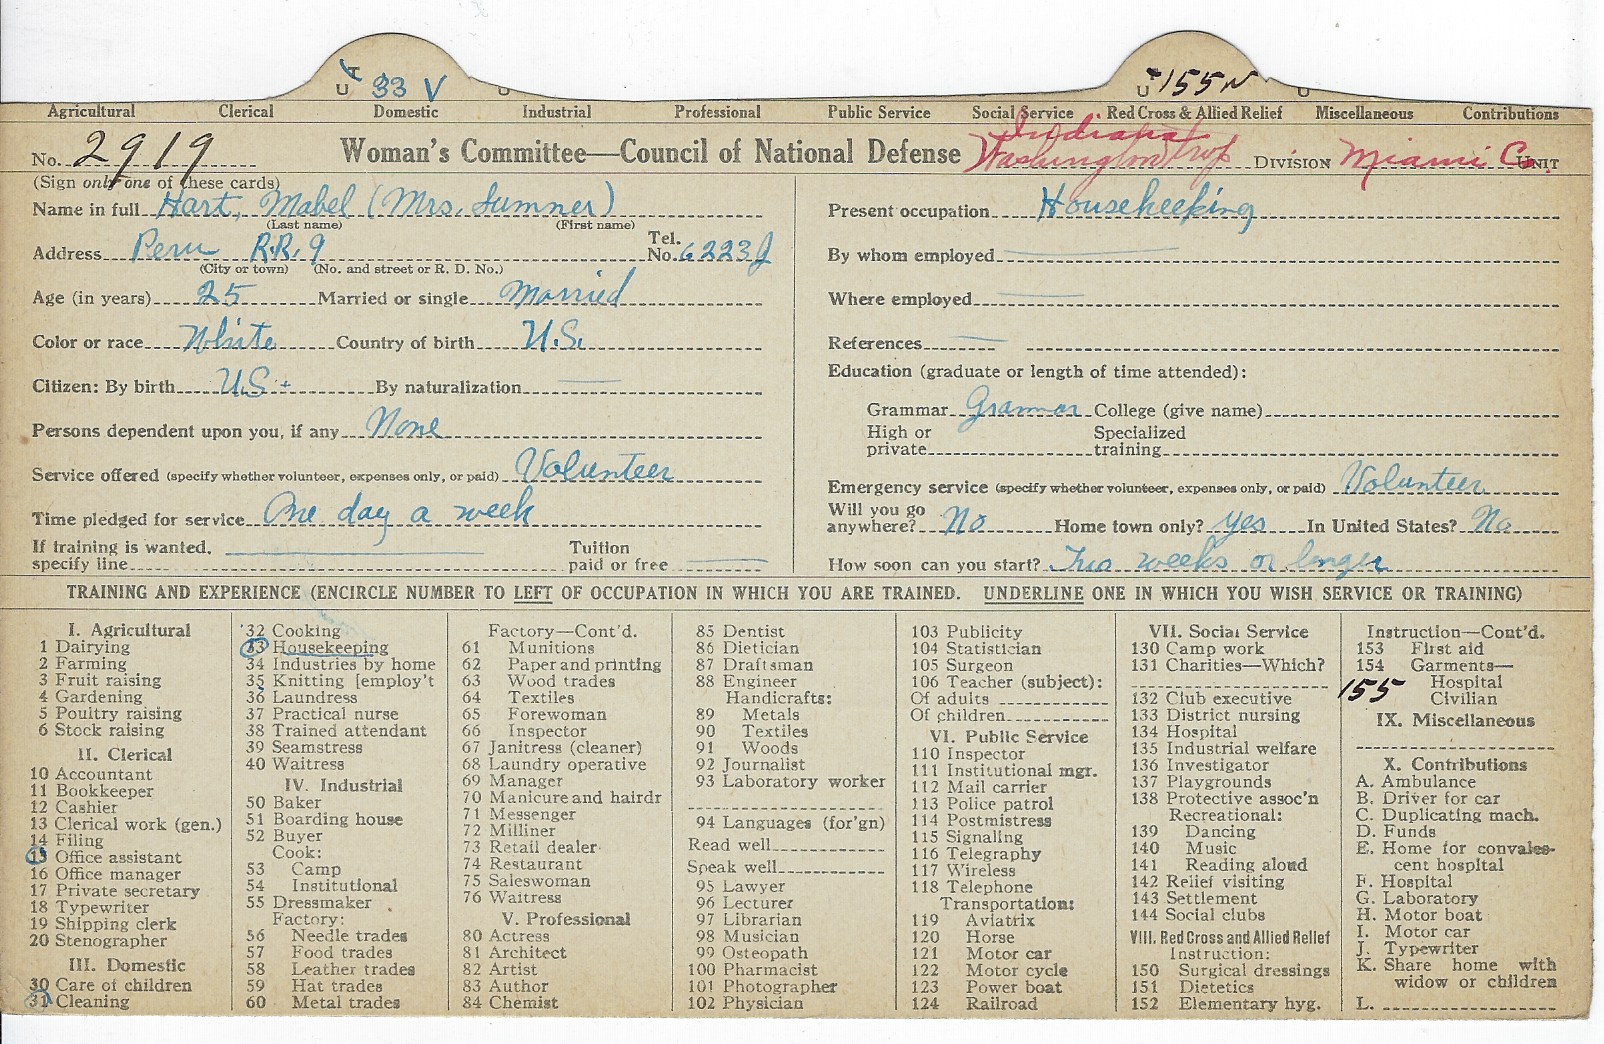 U T 33 V U U T 155 N U
Agricultural Clerical Domestic Industrial Professional Public Service Social Service Red Cross & Allied Relief Miscellaneous Contributions
No. 2919 Woman's Committee—Council of National Defense Indiana Washington Twp DIVISION Miami Co. UNIT
(Sign only one of these cards)
Name in full Hart, Mabel (Mrs. Sumner)
(Last name) (First name)
Address Peru R.R. 9 Tel. No. 6223J
(City or town) (No. and street or R. D. No.)
Age (in years) 25 Married or single Married
Color or race White Country of birth U.S.
Citizen: By birth U.S. + By naturalization
Persons dependent upon you, if any None
Service offered (specify whether volunteer, expenses only, or paid) Volunteer
Time pledged for service One day a week
If training is wanted, specify line Tuition paid or free
Present occupation Housekeeping
By whom employed
Where employed
References
Education (graduate or length of time attended):
Grammar Grammar College (give name)
High or private Specialized training
Emergency service (specify whether volunteer, expenses only, or paid) Volunteer
Will you go anywhere? No Home town only? yes In United States? No
How soon can you start? Two weeks or longer
TRAINING AND EXPERIENCE (ENCIRCLE NUMBER TO LEFT OF OCCUPATION IN WHICH YOU ARE TRAINED. UNDERLINE ONE IN WHICH YOU WISH SERVICE OR TRAINING)
I. Agricultural
1 Dairying
2 Farming
3 Fruit raising
4 Gardening
5 Poultry raising
6 Stock raising
II. Clerical
10 Accountant
11 Bookkeeper
12 Cashier
13 Clerical work (gen.)
14 Filing
15 Office assistant
16 Office manager
17 Private secretary
18 Typewriter
19 Shipping clerk
20 Stenographer
III. Domestic
30 Care of children
31 Cleaning
32 Cooking
33 Housekeeping
34 Industries by home
35 Knitting [employ't
36 Laundress
37 Practical nurse
38 Trained attendant
39 Seamstress
40 Waitress
IV. Industrial
50 Baker
51 Boarding house
52 Buyer
Cook:
53 Camp
54 Institutional
55 Dressmaker
Factory:
56 Needle trades
57 Food trades
58 Leather trades
59 Hat trades
60 Metal trades
Factory—Cont'd.
61 Munitions
62 Paper and printing
63 Wood trades
64 Textiles
65 Forewoman
66 Inspector
67 Janitress (cleaner)
68 Laundry operative
69 Manager
70 Manicure and hairdr
71 Messenger
72 Milliner
73 Retail dealer
74 Restaurant
75 Saleswoman
76 Waitress
V. Professional
80 Actress
81 Architect
82 Artist
83 Author
84 Chemist
85 Dentist
86 Dietician
87 Draftsman
88 Engineer
Handicrafts:
89 Metals
90 Textiles
91 Woods
92 Journalist
93 Laboratory worker
94 Languages (for'gn)
Read well
Speak well
95 Lawyer
96 Lecturer
97 Librarian
98 Musician
99 Osteopath
100 Pharmacist
101 Photographer
102 Physician
103 Publicity
104 Statistician
105 Surgeon
106 Teacher (subject):
Of adults
Of children
VI. Public Service
110 Inspector
111 Institutional mgr.
112 Mail carrier
113 Police patrol
114 Postmistress
115 Signaling
116 Telegraphy
117 Wireless
118 Telephone
Transportation:
119 Aviatrix
120 Horse
121 Motor car
122 Motor cycle
123 Power boat
124 Railroad
VII. Social Service
130 Camp work
131 Charities—Which?
132 Club executive
133 District nursing
134 Hospital
135 Industrial welfare
136 Investigator
137 Playgrounds
138 Protective assoc'n
Recreational:
139 Dancing
140 Music
141 Reading aloud
142 Relief visiting
143 Settlement
144 Social clubs
VIII. Red Cross and Allied Relief
Instruction:
150 Surgical dressings
151 Dietetics
152 Elementary hyg.
Instruction—Cont'd.
153 First aid
154 Garments—
Hospital
155 Civilian
IX. Miscellaneous
X. Contributions
A. Ambulance
B. Driver for car
C. Duplicating mach.
D. Funds
E. Home for convales-
cent hospital
F. Hospital
G. Laboratory
H. Motor boat
I. Motor car
J. Typewriter
K. Share home with
widow or children
L.